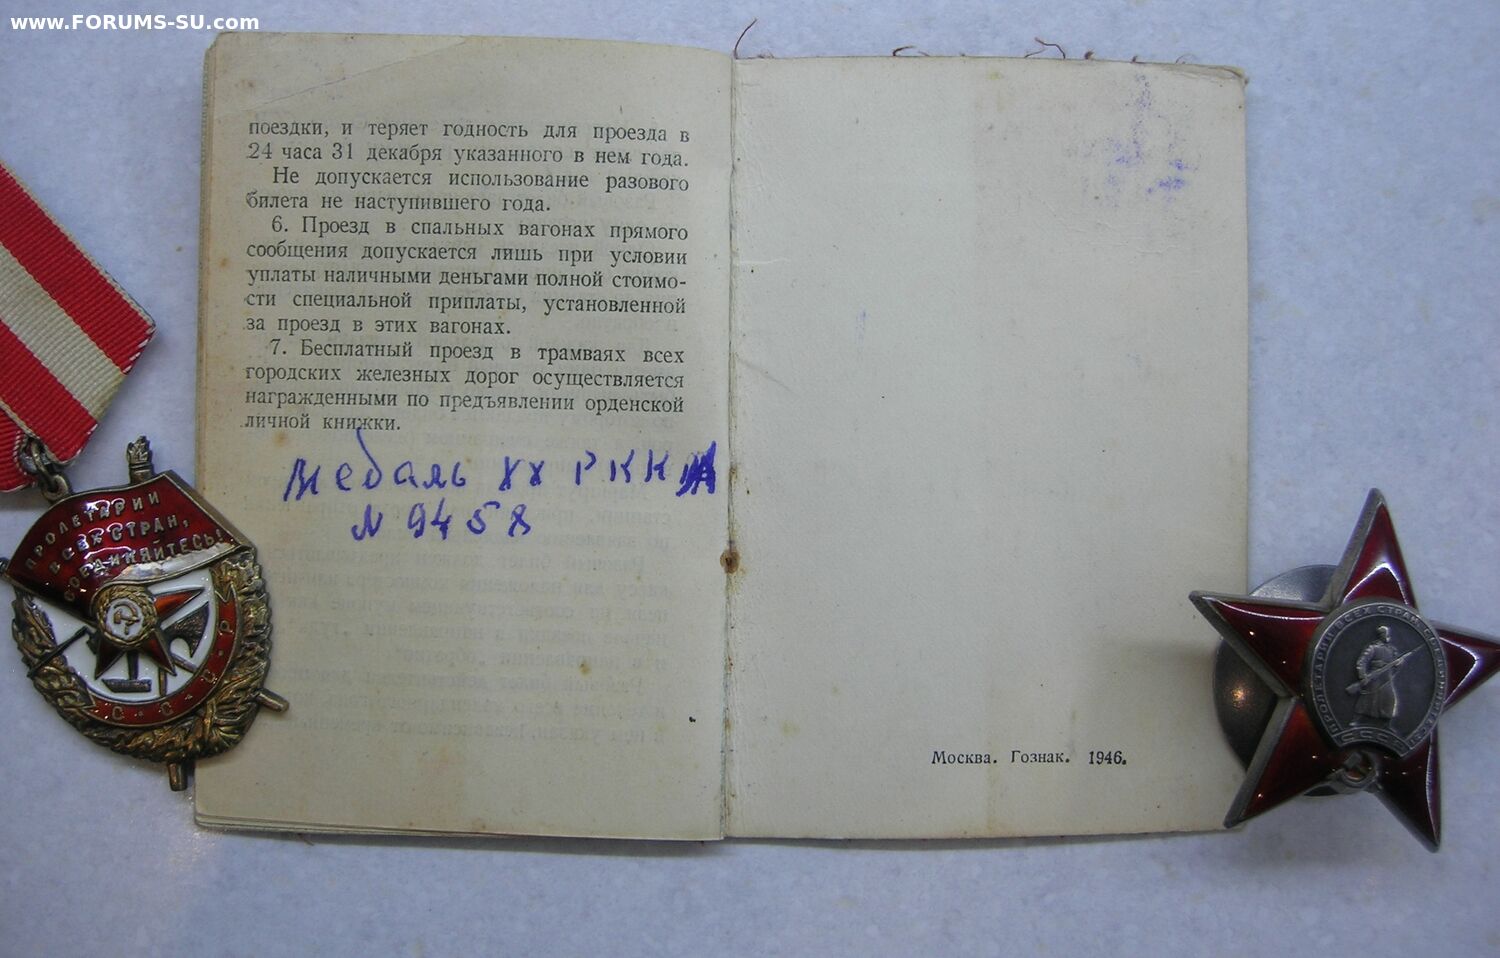 www.FORUMS-SU.com
поездки, и теряет годность для проезда в
24 часа 31 декабря указанного в нем года.
Не допускается использование разового
билета не наступившего года.
6. Проезд в спальных вагонах прямого
сообщения допускается лишь при условии
уплаты наличными деньгами полной стоимо-
сти специальной приплаты, установленной
за проезд в этих вагонах.
7. Бесплатный проезд в трамваях всех
городских железных дорог осуществляется
награжденными по предъявлении орденской
личной книжки.
Медаль XX РККА
N 9458
Москва. Гознак. 1946.
ПРОЛЕТАРИИ
ВСЕХ СТРАН,
СОЕДИНЯЙТЕСЬ!
С·С·С·Р
ПРОЛЕТАРИИ ВСЕХ СТРАН СОЕДИНЯЙТЕСЬ
СССР